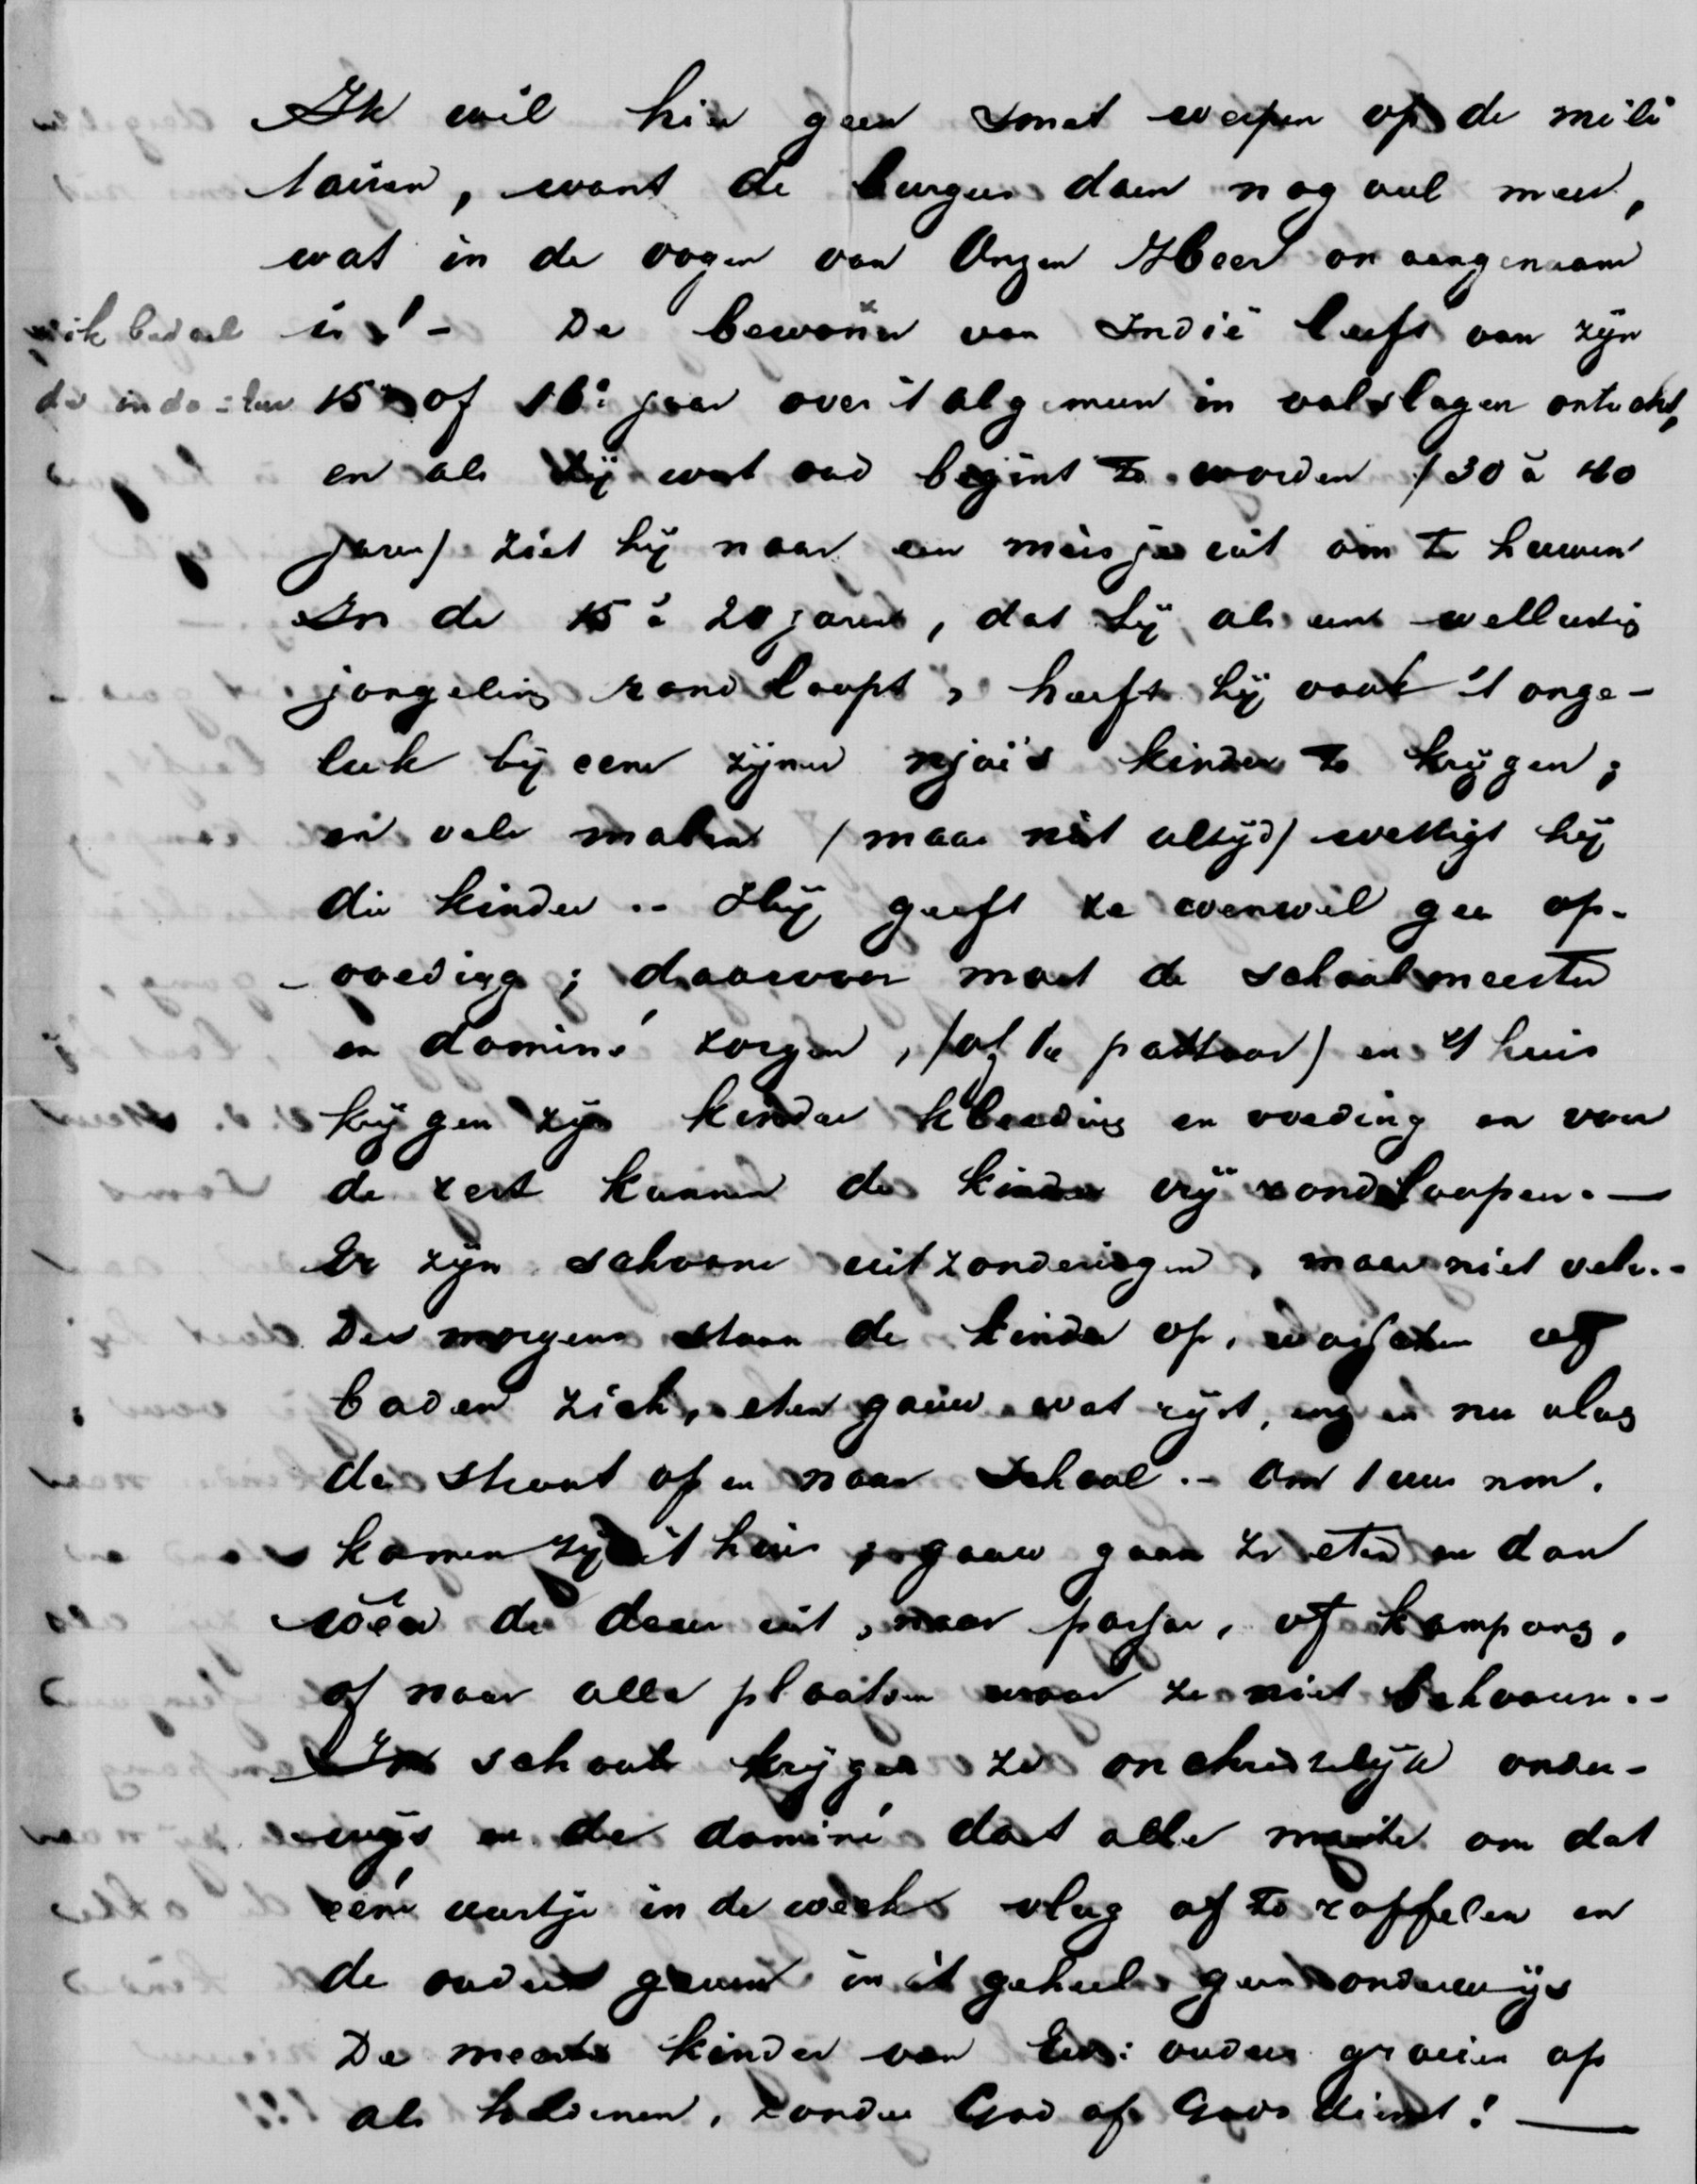 Ik wil hier geen smet werpen op de mili
tairen, want de burgers doen nog veel meer,
wat in de oogen van Onzen Heer onaangenaam
is! - De bewoner x van Indië leeft van zijn
ik bedoel
de indo-
15e of 16e jaar over 't algemeen in volslagen ontucht,
en als hij wat oud begint te worden (30 à 40
jaren) ziet hij naar een meisje uit om te huwen
In de 15 à 20 jaren, dat hij als een wellustig
jongeling rondloopt, heeft hij vaak 't onge-
luk bij eene zijner njai's kinderen te krijgen;
en vele malen (maar niet altijd) wettigt hij
die kinder .- Hij geeft ze evenwel geen op-
-voeding; daarvoor moet de schoolmeester
en dominé zorgen, (of de pastoor) en 't huis
krijgen zijn kinder kleeding en voeding en voor
de rest kunnen de kinder vrij rondloopen. —
Er zijn schoone uitzonderingen, maar niet vele.-
Des morgens staan de kinder op, wasschen of
baden zich, eten gauw wat rijst, en nu vlug
de straat op en naar school.- Om 1 uur nm.
komen zij 't huis; gauw gaan ze eten en dan
wéér de deur uit, naar passar, of kampong,
of naar alle plaatsen waar ze niet behooren.-
In school krijgen ze onchristelijk onder-
wijs en de dominé doet alle moeite om dat
eene uurtje in de week vlug af te roffelen en
de ouders geven in 't geheel geen onderwijs
De meeste kinder van Eur: ouders groeien op
als heidenen, zonder God of Godsdienst! —